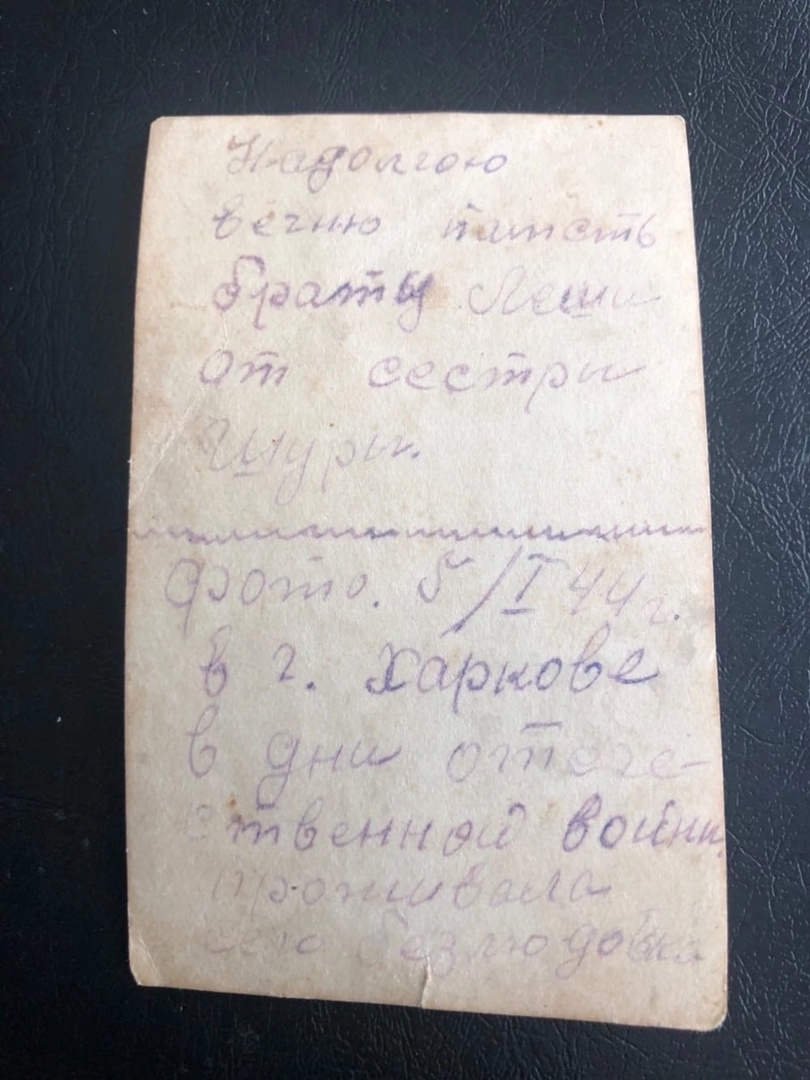 Надолгою
вечню память
братц Леши
от сестры
Шуры.
фото. 5/I 44 г.
в г. Харкове
в дни отече-
ственной войны
проживала
село Безлюдовка